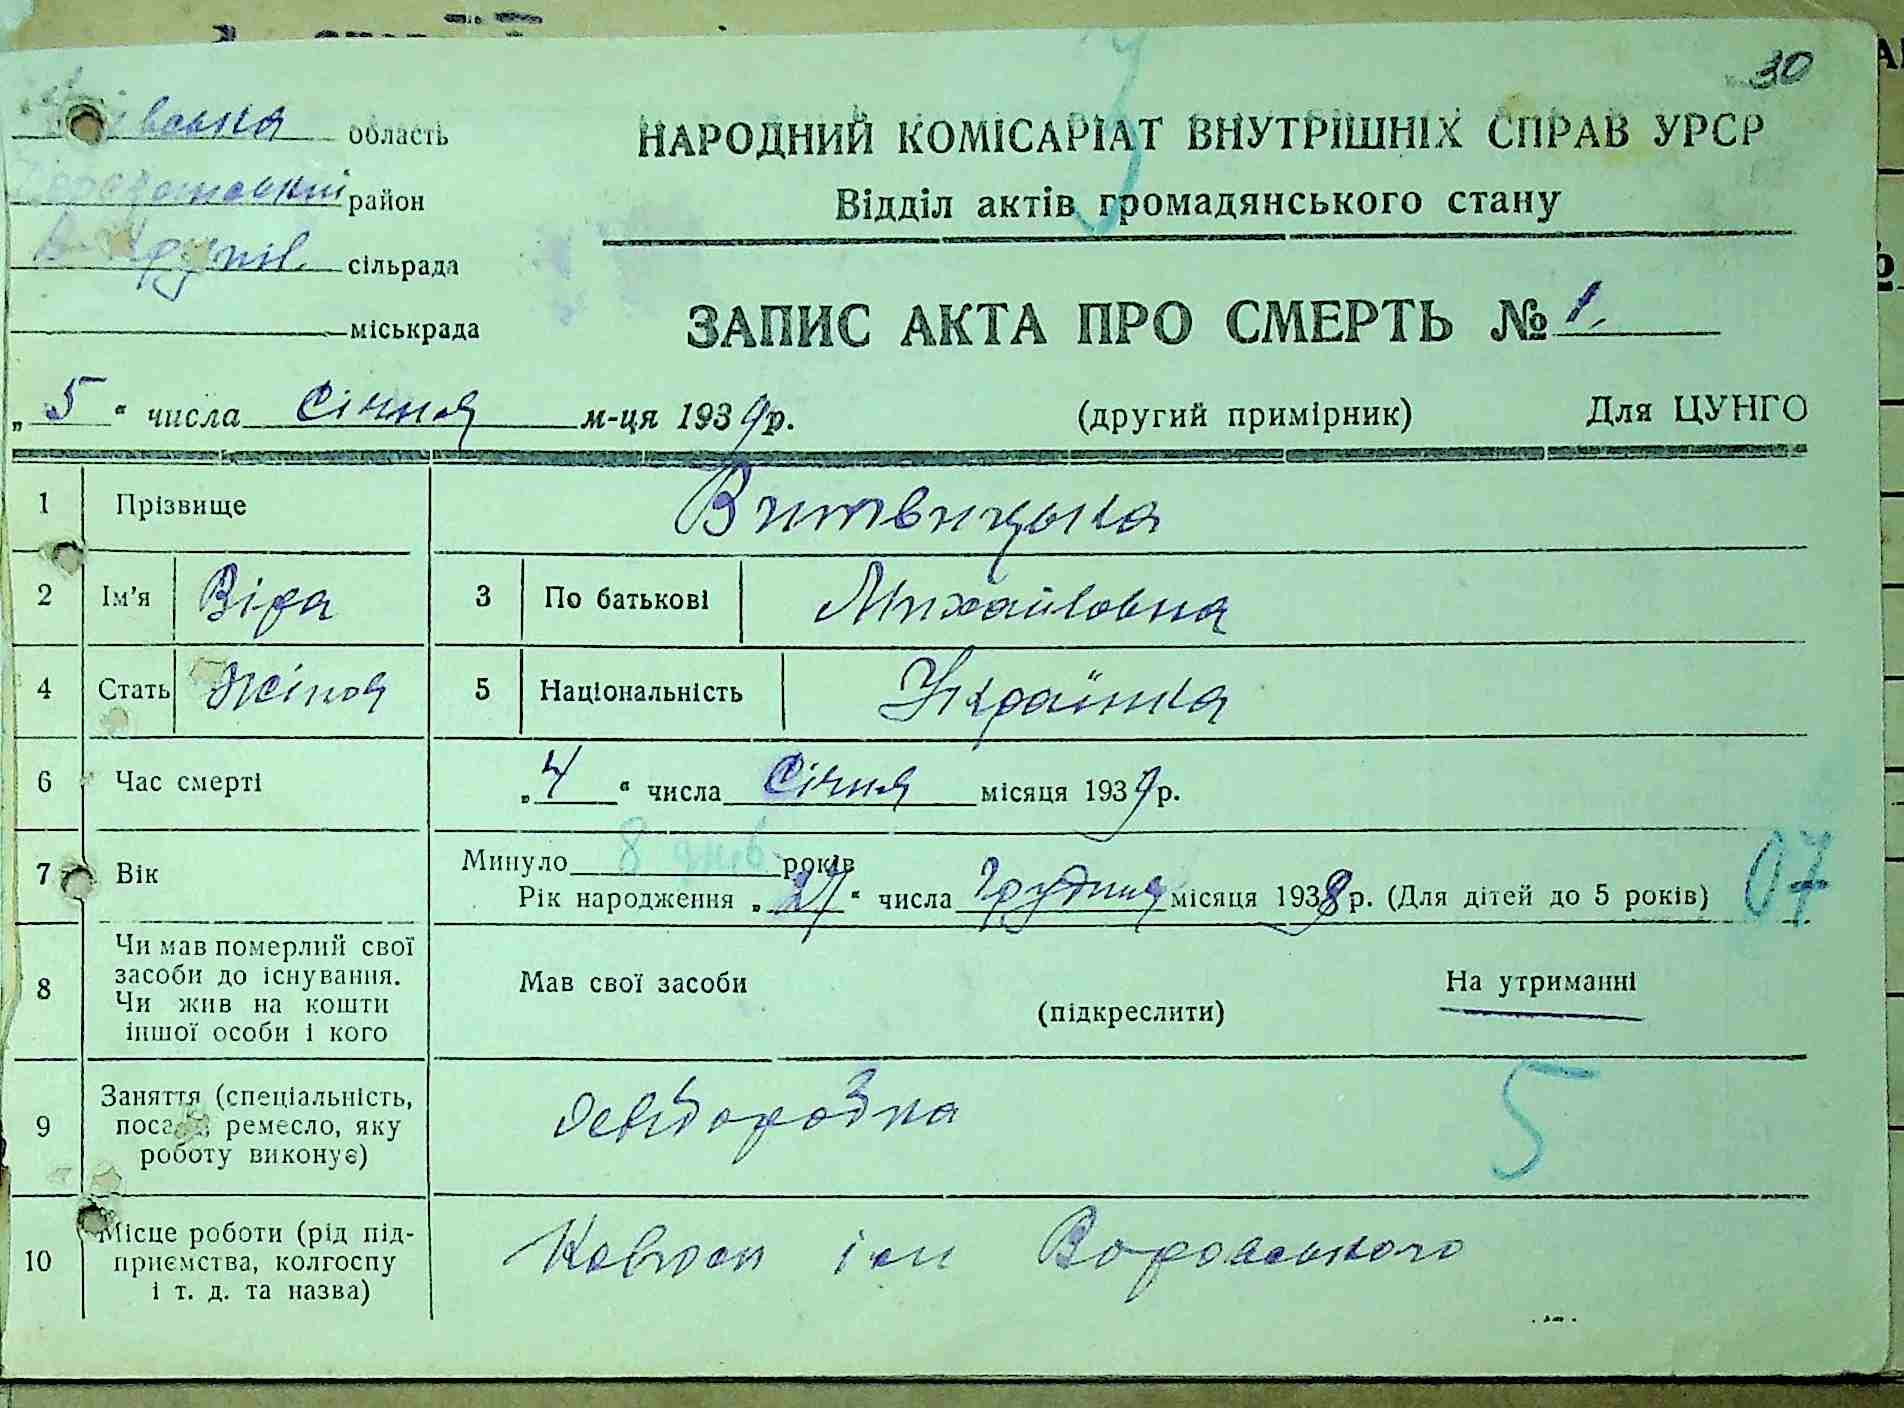 30
область
НАРОДНИЙ КОМІСАРІАТ ВНУТРІШНІХ СПРАВ УРСР
район
Відділ актів громадянського стану
сільрада
міськрада
ЗАПИС АКТА ПРО СМЕРТЬ № 1.
„5“ числа січня м-ця 1939 р.
(другий примірник) Для ЦУНГО
1 Прізвище Витвицька
2 Ім'я Віра 3 По батькові Михайловна
4 Стать Жіноч 5 Національність Українка
6 Час смерті „4“ числа Січня місяця 1939 р.
7 Вік Минуло 8 днів років
Рік народження „27“ числа Грудня місяця 1938 р. (Для дітей до 5 років) 07
8 Чи мав померлий свої
засоби до існування.
Чи жив на кошти
іншої особи і кого
Мав свої засоби
(підкреслити)
На утриманні
9 Заняття (спеціальність,
посада, ремесло, яку
роботу виконує)
5
10 Місце роботи (рід під-
приємства, колгоспу
і т. д. та назва)
Колгосп ім Воровського